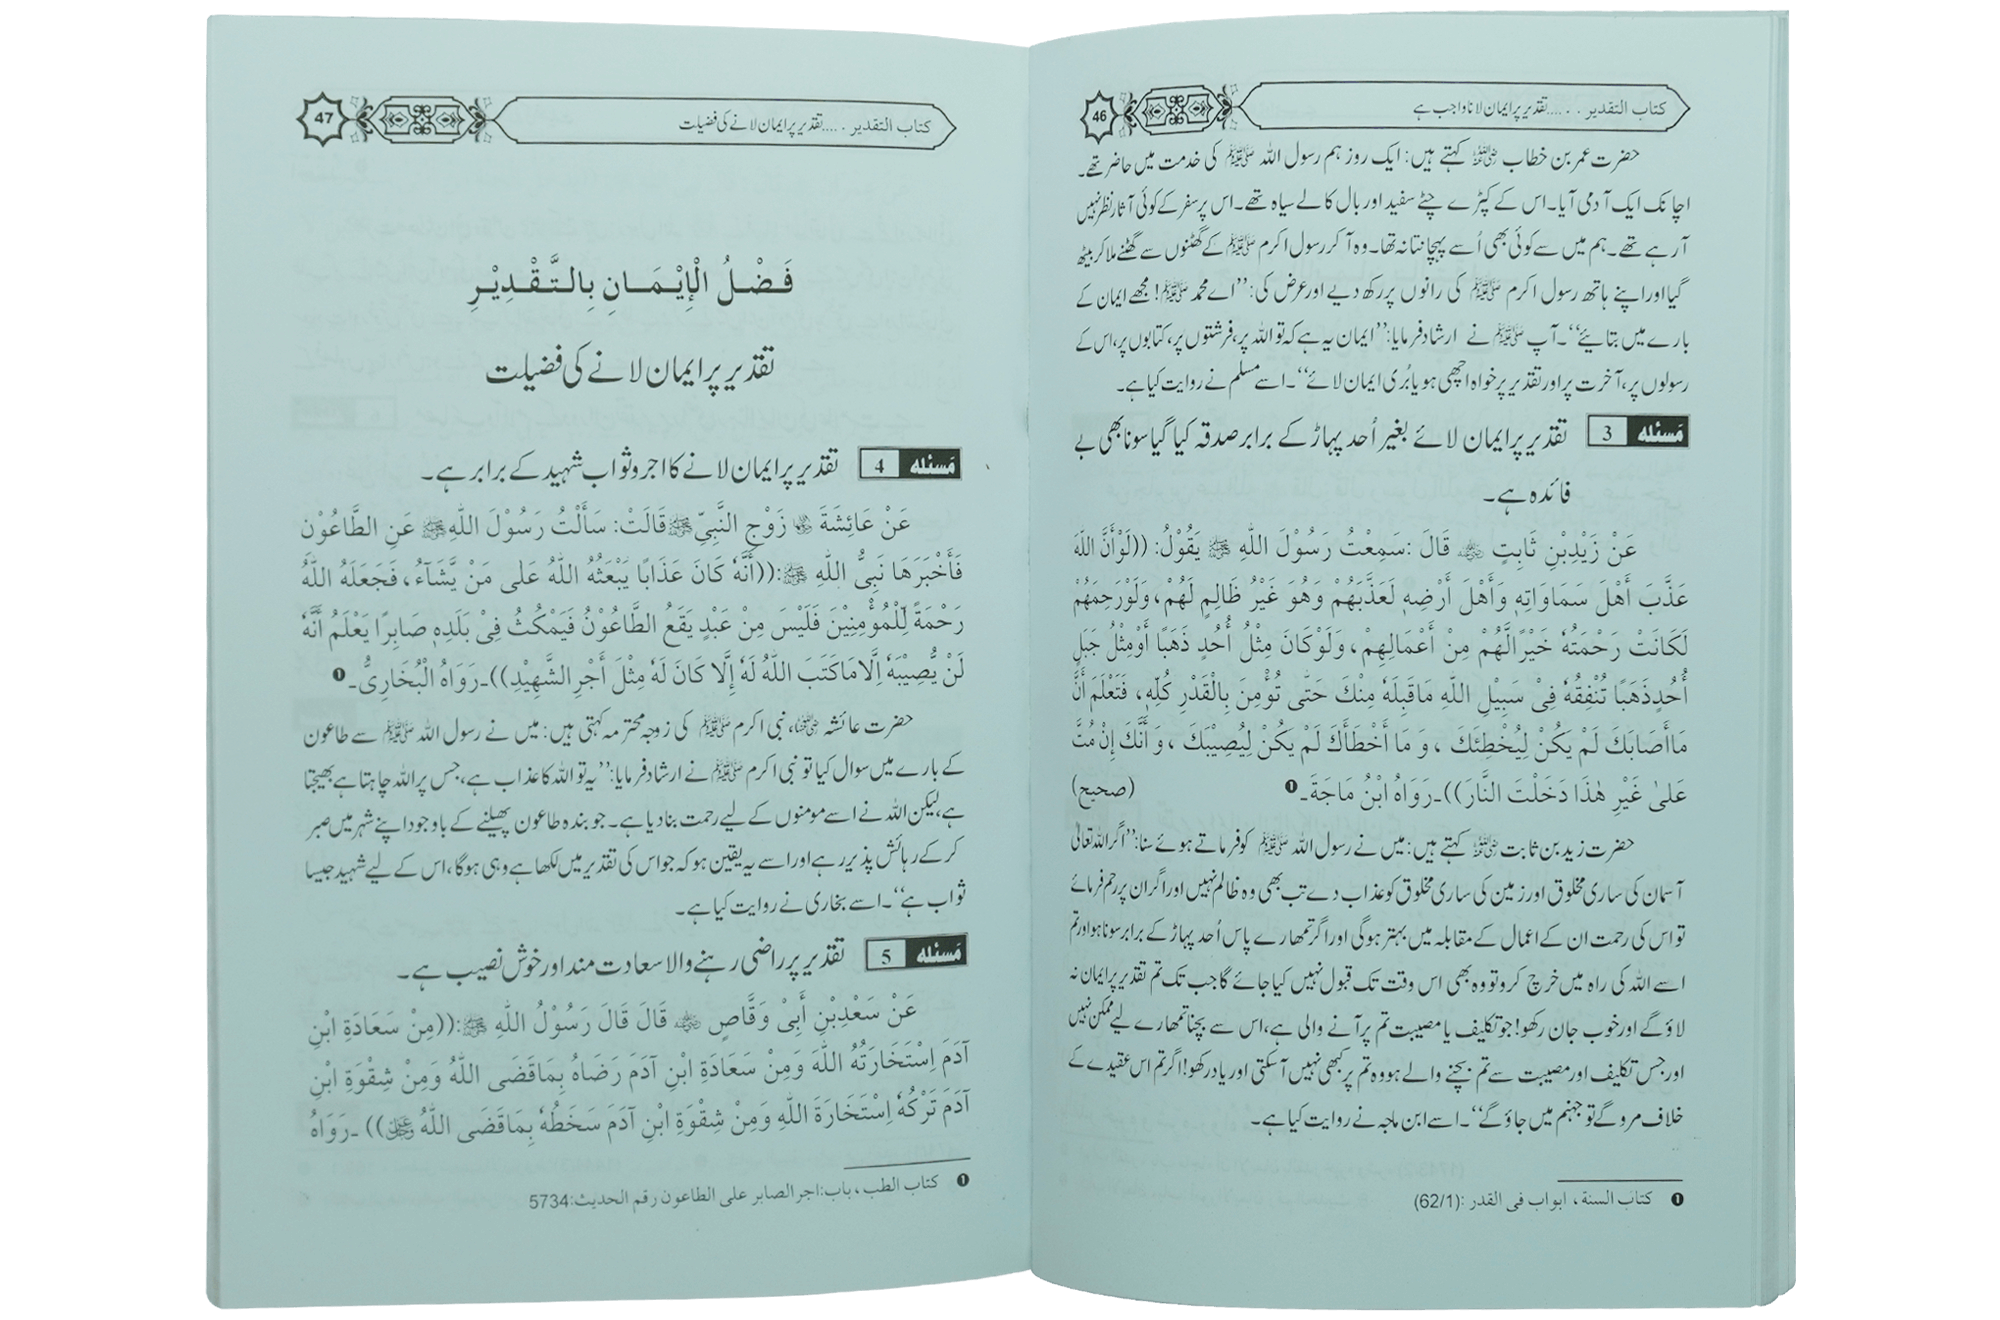 46
کتاب التقدیر . . ....تقدیر پر ایمان لانا واجب ہے
حضرت عمر بن خطاب رضی اللہ عنہ کہتے ہیں: ایک روز ہم رسول اللہ ﷺ کی خدمت میں حاضر تھے۔
اچانک ایک آدمی آیا۔ اس کے کپڑے چٹے سفید اور بال کالے سیاہ تھے۔ اس پر سفر کے کوئی آثار نظر نہیں
آرہے تھے۔ ہم میں سے کوئی بھی اُسے پہچانتا نہ تھا۔ وہ آ کر رسول اکرم ﷺ کے گھٹنوں سے گھٹنے ملا کر بیٹھ
گیا اور اپنے ہاتھ رسول اکرم ﷺ کی رانوں پر رکھ دیے اور عرض کی: ’’اے محمد ﷺ! مجھے ایمان کے
بارے میں بتائیے‘‘۔ آپ ﷺ نے ارشاد فرمایا: ’’ایمان یہ ہے کہ تو اللہ پر، فرشتوں پر، کتابوں پر، اس کے
رسولوں پر، آخرت پر اور تقدیر پر خواہ اچھی ہو یا بُری ایمان لائے‘‘۔ اسے مسلم نے روایت کیا ہے۔
مَسئله 3 تقدیر پر ایمان لائے بغیر اُحد پہاڑ کے برابر صدقہ کیا گیا سونا بھی بے
فائدہ ہے۔
عَنْ زَيْدِبْنِ ثَابِتٍ رضی اللہ عنہ قَالَ :سَمِعْتُ رَسُوْلَ اللهِ ﷺ يَقُوْلُ: ((لَوْأَنَّ اللهَ
عَذَّبَ أَهْلَ سَمَاوَاتِهٖ وَأَهْلَ أَرْضِهٖ لَعَذَّبَهُمْ وَهُوَ غَيْرُ ظَالِمٍ لَهُمْ، وَلَوْرَحِمَهُمْ
لَكَانَتْ رَحْمَتُهٗ خَيْرًالَّهُمْ مِنْ أَعْمَالِهِمْ، وَلَوْكَانَ مِثْلُ أُحُدٍ ذَهَبًا أَوْمِثْلُ جَبَلِ
أُحُدٍذَهَبًا تُنْفِقُهٗ فِیْ سَبِيْلِ اللهِ مَاقَبِلَهٗ مِنْكَ حَتّٰى تُؤْمِنَ بِالْقَدْرِ كُلِّهٖ، فَتَعْلَمَ أَنَّ
مَاأَصَابَكَ لَمْ يَكُنْ لِيُخْطِئَكَ ، وَ مَا أَخْطَأَكَ لَمْ يَكُنْ لِيُصِيْبَكَ ، وَ أَنَّكَ إِنْ مُتَّ
عَلىٰ غَيْرِ هٰذَا دَخَلْتَ النَّارَ))۔رَوَاهُ ابْنُ مَاجَةَ۔❶ (صحيح)
حضرت زید بن ثابت رضی اللہ عنہ کہتے ہیں: میں نے رسول اللہ ﷺ کو فرماتے ہوئے سنا: ’’اگر اللہ تعالیٰ
آسمان کی ساری مخلوق اور زمین کی ساری مخلوق کو عذاب دے تب بھی وہ ظالم نہیں اور اگر ان پر رحم فرمائے
تو اس کی رحمت ان کے اعمال کے مقابلہ میں بہتر ہوگی اور اگر تمھارے پاس اُحد پہاڑ کے برابر سونا ہو اور تم
اسے اللہ کی راہ میں خرچ کرو تو وہ بھی اس وقت تک قبول نہیں کیا جائے گا جب تک تم تقدیر پر ایمان نہ
لاؤ گے اور خوب جان رکھو! جو تکلیف یا مصیبت تم پر آنے والی ہے، اس سے بچنا تمھارے لیے ممکن نہیں
اور جس تکلیف اور مصیبت سے تم بچنے والے ہو وہ تم پر کبھی نہیں آسکتی اور یاد رکھو! اگر تم اس عقیدے کے
خلاف مرو گے تو جہنم میں جاؤ گے‘‘۔ اسے ابن ماجہ نے روایت کیا ہے۔
❶ كتاب السنة ، ابواب فى القدر :(62/1)
47
کتاب التقدیر . ....تقدیر پر ایمان لانے کی فضیلت
فَضْلُ الْإِيْمَانِ بِالتَّقْدِيْرِ
تقدیر پر ایمان لانے کی فضیلت
مَسئله 4 تقدیر پر ایمان لانے کا اجر و ثواب شہید کے برابر ہے۔
عَنْ عَائِشَةَ رضی اللہ عنہا زَوْجِ النَّبِيِّ ﷺ قَالَتْ: سَأَلْتُ رَسُوْلَ اللهِ ﷺ عَنِ الطَّاعُوْنِ
فَأَخْبَرَهَا نَبِيُّ اللهِ ﷺ:((أَنَّهٗ كَانَ عَذَابًا يَبْعَثُهُ اللهُ عَلٰى مَنْ يَّشَآءُ، فَجَعَلَهُ اللهُ
رَحْمَةً لِّلْمُؤْمِنِيْنَ فَلَيْسَ مِنْ عَبْدٍ يَقَعُ الطَّاعُوْنُ فَيَمْكُثُ فِىْ بَلَدِهٖ صَابِرًا يَعْلَمُ أَنَّهٗ
لَنْ يُّصِيْبَهٗ اِلَّامَاكَتَبَ اللهُ لَهٗ إِلَّا كَانَ لَهٗ مِثْلَ أَجْرِ الشَّهِيْدِ))۔رَوَاهُ الْبُخَارِىُّ۔❶
حضرت عائشہ رضی اللہ عنہا، نبی اکرم ﷺ کی زوجہ محترمہ کہتی ہیں: میں نے رسول اللہ ﷺ سے طاعون
کے بارے میں سوال کیا تو نبی اکرم ﷺ نے ارشاد فرمایا: ’’یہ تو اللہ کا عذاب ہے، جس پر اللہ چاہتا ہے بھیجتا
ہے، لیکن اللہ نے اسے مومنوں کے لیے رحمت بنا دیا ہے۔ جو بندہ طاعون پھیلنے کے باوجود اپنے شہر میں صبر
کر کے رہائش پذیر رہے اور اسے یہ یقین ہو کہ جو اس کی تقدیر میں لکھا ہے وہی ہوگا، اس کے لیے شہید جیسا
ثواب ہے‘‘۔ اسے بخاری نے روایت کیا ہے۔
مَسئله 5 تقدیر پر راضی رہنے والا سعادت مند اور خوش نصیب ہے۔
عَنْ سَعْدِبْنِ أَبِىْ وَقَّاصٍ رضی اللہ عنہ قَالَ قَالَ رَسُوْلُ اللهِ ﷺ:((مِنْ سَعَادَةِ ابْنِ
آدَمَ اِسْتَخَارَتُهُ اللهَ وَمِنْ سَعَادَةِ ابْنِ آدَمَ رَضَاهُ بِمَاقَضَى اللهُ وَمِنْ شِقْوَةِ ابْنِ
آدَمَ تَرْكُهٗ اِسْتَخَارَةَ اللهِ وَمِنْ شِقْوَةِ ابْنِ آدَمَ سَخَطُهٗ بِمَاقَضَى اللهُ عزوجل)) ۔رَوَاهُ
❶ كتاب الطب ، باب:اجر الصابر على الطاعون رقم الحديث:5734